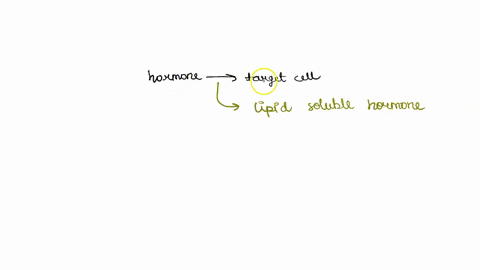 hormone → target cell
lipid soluble hormone